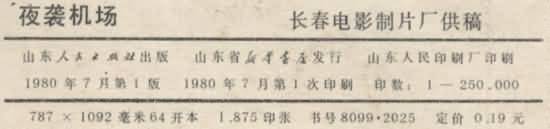 夜袭机场 长春电影制片厂供稿
山东人民出版社出版 山东省新华书店发行 山东人民印刷厂印刷
1980年7月第1版 1980年7月第1次印刷 印数:1—250.000
787×1092毫米64开本 1.875印张 书号8099·2025 定价 0.19元